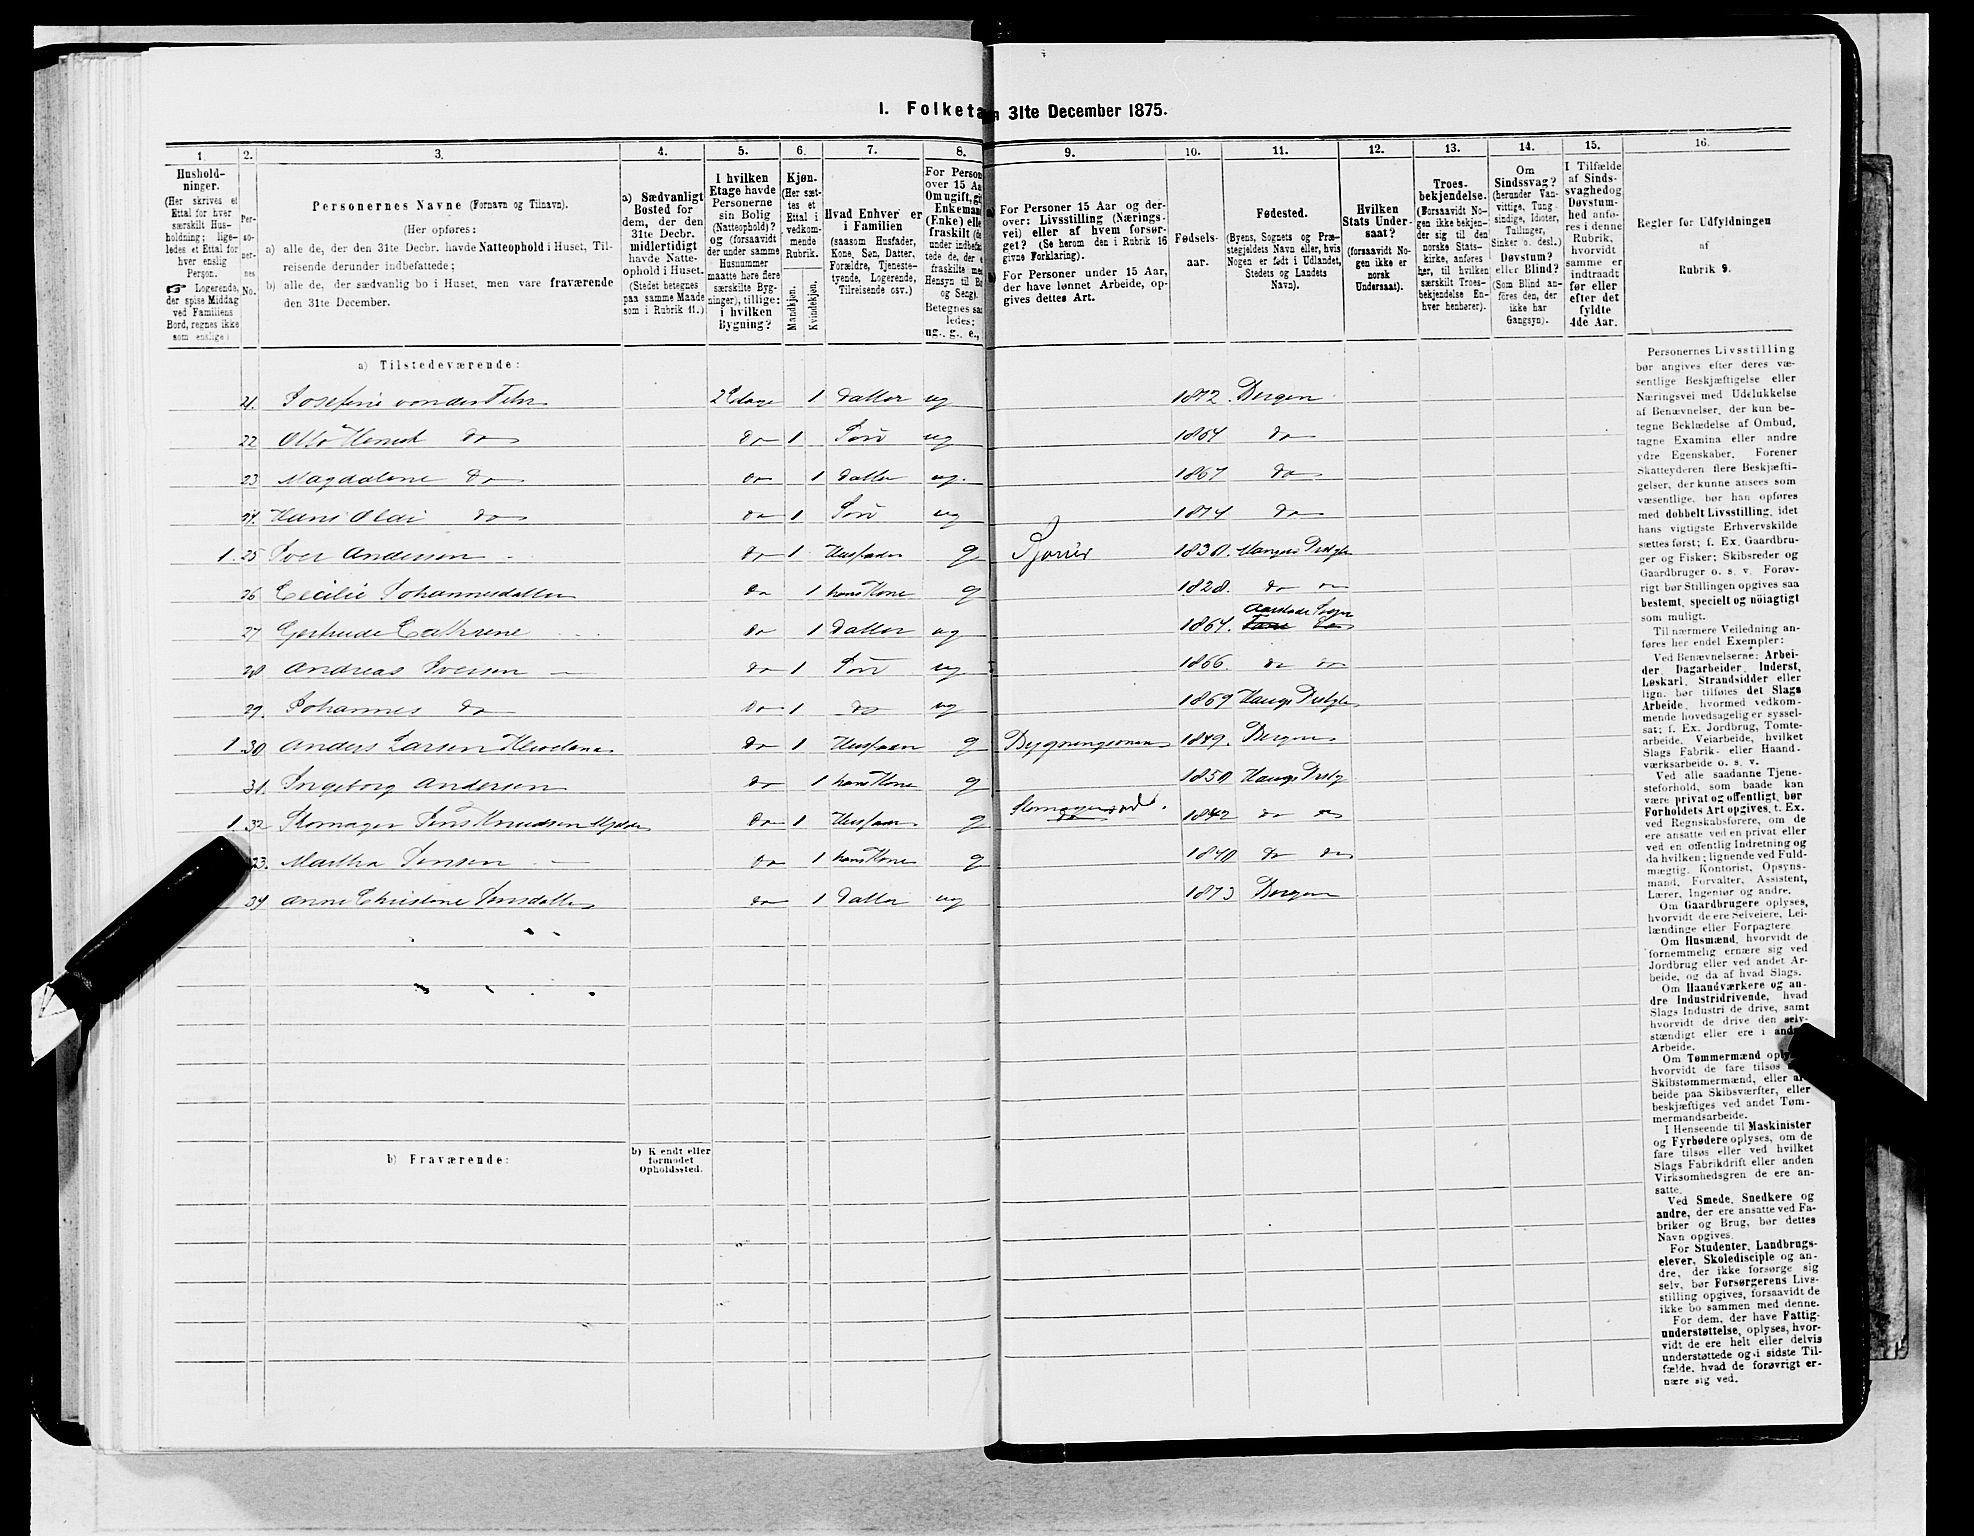 I. Folketa
n 31te December 1875.
1.
2.
3.
4.
5.
6.
7.
8.
9.
10.
11.
12.
13.
14.
15.
16.
Hushold-
ninger.
(Her skrives et
Ettal for hver
særskilt Hus-
holdning; lige-
ledes et Ettal for
hver enslig
Person.
☞ Logerende,
der spise Middag
ved Familiens
Bord, regnes ikke
som enslige)
Per-
so-
ner-
nes
No.
Personernes Navne (Fornavn og Tilnavn).
(Her opføres:
a) alle de, der den 31te Decbr. havde Natteophold i Huset, Til-
reisende derunder indbefattede;
b) alle de, der sædvanlig bo i Huset, men vare fraværende
den 31te December.
a) Sædvanligt
Bosted for
dem, der den
31te Decbr.
midlertidigt
havde Natte-
ophold i Huset.
(Stedet betegnes
paa samme Maade
som i Rubrik 11.)
I hvilken
Etage havde
Personerne
sin Bolig
(Natteophold)?
og (forsaavidt
der under samme
Husnummer
maatte høre flere
særskilte Byg-
ninger), tillige:
i hvilken
Bygning?
Kjøn.
(Her sæt-
tes et
Ettal i
vedkom-
mende
Rubrik.
Mandkjøn.
Kvindekjøn.
Hvad Enhver er
i Familien
(saasom Husfader,
Kone, Søn, Datter,
Forældre, Tjeneste-
tyende, Logerende,
Tilreisende osv.)
For Person
over 15 Aa
Om ugift, gi
Enkeman
(Enke) elle
fraskilt (de
under indbefat
tede de, der e
fraskilte me
Hensyn til Bo
og Seng).
Betegnes saa
ledes:
ug., g., e.,
For Personer 15 Aar og der-
over: Livsstilling (Nærings-
vei) eller af hvem forsør-
get? (Se herom den i Rubrik 16
givne Forklaring).
For Personer under 15 Aar,
der have lønnet Arbeide, op-
gives dettes Art.
Fødsels-
aar.
Fødested.
(Byens, Sognets og Præ-
stegjeldets Navn eller, hvis
Nogen er født i Udlandet,
Stedets og Landets
Navn).
Hvilken
Stats Under-
saat?
(forsaavidt No-
gen ikke er
norsk
Undersaat).
Troes-
bekjendelse.
(Forsaavidt No-
gen ikke bekjen-
der sig til den
norske Stats-
kirke, anføres
her, til hvilken
særskilt Troes-
bekjendelse En-
hver henhører).
Om
Sindssvag?
(herunder Van-
vittige, Tung-
sindige, Idioter,
Tullinger,
Sinker o. desl.).
Døvstum?
eller Blind?
(Som Blind an-
føres den, der
ikke har
Gangsyn).
I Tilfælde
af Sinds-
svaghedog
Døvstum-
hed anfø-
res i denne
Rubrik,
hvorvidt
samme er
indtraadt
før eller
efter det
fyldte
4de Aar.
Regler for Udfyldningen
af
Rubrik 9.
a) Tilstedeværende:
21. Josefine vonder Fehr 2 Etage 1 Datter ug 1872. Bergen
22 Otto Henrik do do 1 Søn ug 1864 do
23 Magdalene do do 1 Datter ug. 1867 do
24. Hans Olai do do 1 Søn ug 1874 do
1. 25 Iver Andersen do 1 Husfader g 1830. Prstgl
26 Cecilie Johannesdatter do 1 hans Kone g 1828. do do
27 Gertrude Cathrine do 1 Datter ug 1864. Aarstads Sogn
28 Andreas Iversen do 1 Søn ug 1866. do do
29. Johannes do do 1 do ug 1869 Prstgl
1 30 Anders Larsen do 1 Husfader g Bygningsmand 1849. Bergen
31. Ingeborg Andersen do 1 hans Kone g 1850
1. 32 Skomager Jens Knudsen do 1 Husfader g 1842 do do
33. Martha Jensen do 1 hans Kone g 1840 do do
34 Anne Christine Jensdatter do 1 Datter ug 1873 Bergen
b) Fraværende:
b) Kjendt eller
formodet
Opholdssted.
Personernes Livsstilling
bør angives efter deres væ-
sentlige Beskjæftigelse eller
Næringsvei med Udelukkelse
af Benævnelser, der kun be-
tegne Beklædelse af Ombud,
tagne Examina eller andre
ydre Egenskaber. Forener
Skatteyderen flere Beskjæfti-
gelser, der kunne ansees som
væsentlige, bør han opføres
med dobbelt Livsstilling, idet
hans vigtigste Erhvervskilde
sættes først; f. Ex. Gaardbru-
ger og Fisker; Skibsreder og
Gaardbruger o. s. v. Forøv-
rigt bør Stillingen opgives saa
bestemt, specielt og nöiagtigt
som muligt.
Til nærmere Veiledning an-
føres her endel Exempler:
Ved Benævnelserne: Arbei-
der, Dagarbeider, Inderst,
Løskarl, Strandsidder eller
lign. bør tilføies det Slags
Arbeide, hvormed vedkom-
mende hovedsagelig er syssel-
sat; f. Ex. Jordbrug, Tomte-
arbeide, Veiarbeide, hvilket
Slags Fabrik- eller Haand-
værksarbeide o. s. v.
Ved alle saadanne Tjene-
steforhold, som baade kan
være privat og offentligt, bør
Forholdets Art opgives, t. Ex.
ved Regnskabsførere, om de
ere ansatte ved en privat eller
ved en offentlig Indretning og
da hvilken; lignende ved Fuld-
mægtig, Kontorist, Opsyns-
mand, Forvalter, Assistent,
Lærer, Ingeniør og andre.
Om Gaardbrugere oplyses,
hvorvidt de ere Selveiere, Lei-
lændinge eller Forpagtere
Om Husmænd, hvorvidt de
fornemmelig ernære sig ved
Jordbrug eller ved andet Ar-
beide, og da af hvad Slags.
Om Haandværkere og an-
dre Industridrivende, hvad
Slags Industri de drive, samt
hvorvidt de drive den selv-
stændigt eller ere i andres
Arbeide.
Om Tømmermænd oply
hvorvidt de fare tilsøs
Skibstømmermænd, eller ar
beide paa Skibsværfter, eller
beskjæftiges ved andet Tøm-
mermandsarbeide.
I Henseende til Maskinister
og Fyrbødere oplyses, om de
fare tilsøs eller ved hvilket
Slags Fabrikdrift eller anden
Virksomhedsgren de ere an-
satte.
Ved Smede, Snedkere og
andre, der ere ansatte ved Fa-
briker og Brug, bør dettes
Navn opgives.
For Studenter, Landbrugs-
elever, Skoledisciple og an-
dre, der ikke forsørge sig
selv, bør Forsørgerens Livs-
stilling opgives, forsaavidt de
ikke bo sammen med denne.
For dem, der have Fattig-
understøttelse, oplyses, hvor-
vidt de ere helt eller delvis
understøttede og i sidste Til-
fælde, hvad de forøvrigt er-
nære sig ved.